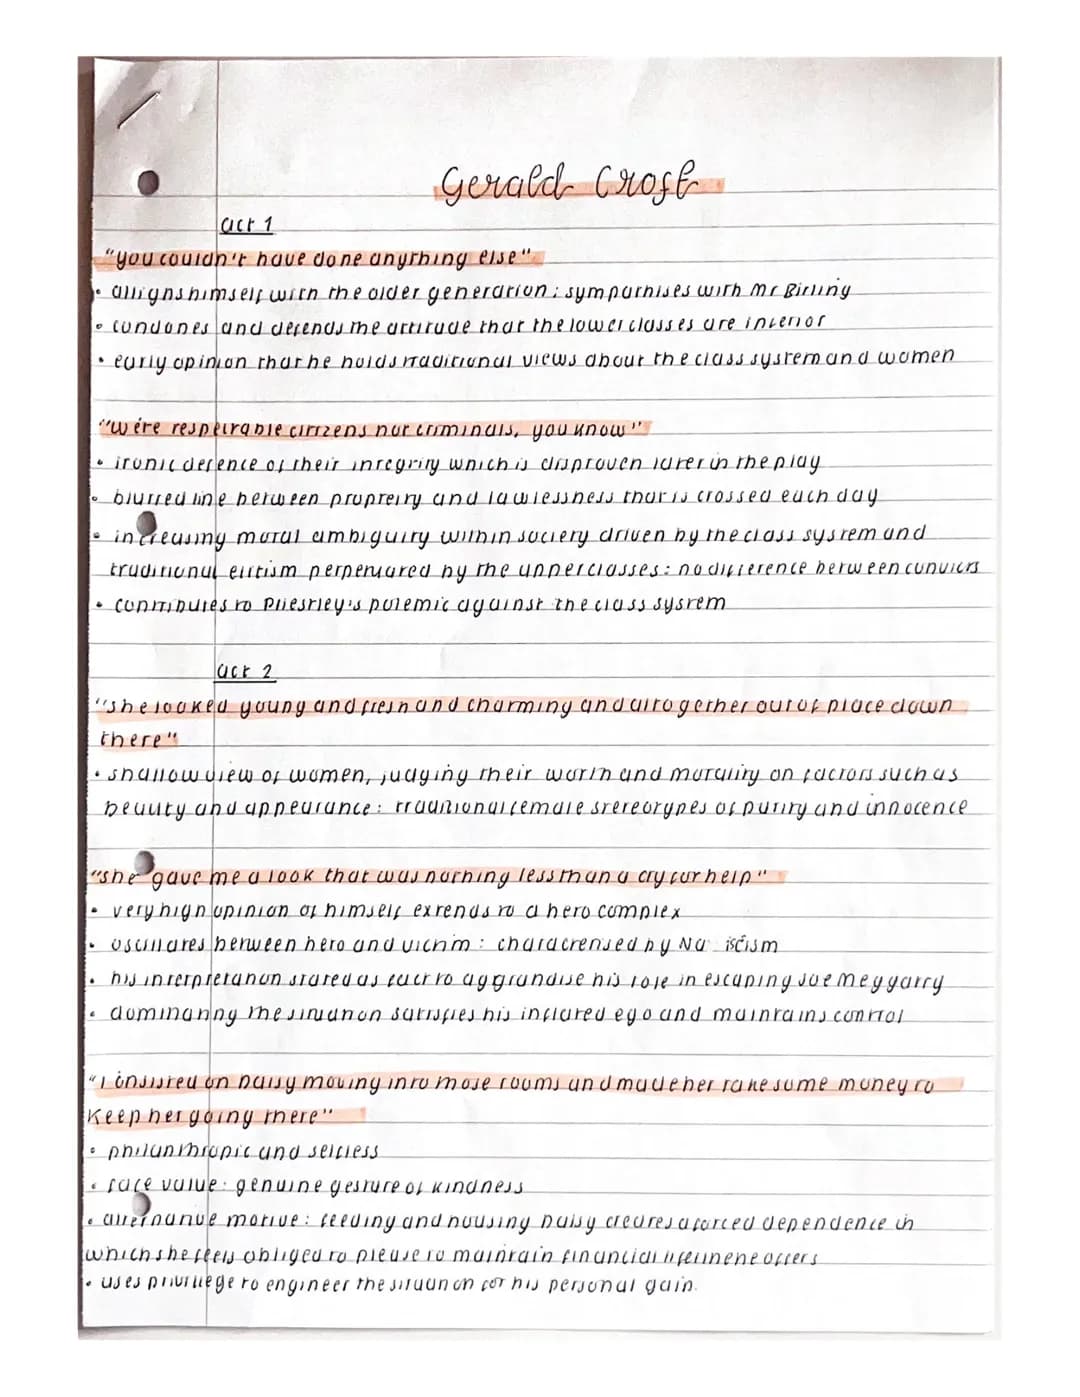 Gerald Croft
act 1
"you couldn't have done anything else"
• allignshimself with the older generation: sympathises with Mr Birling
• condones and defends the attitude that the lower classes are inferior
• early opinion that he holds traditional views about the class system and women
"we're respectable citizens not criminals, you know"
• ironic defence of their integrity which is disproven later in the play
• blurred line between propreity and lawlessness that is crossed each day
• increasing moral ambiguity within society driven by the class system and
traditional elitism perpetuated by the upperclasses: no difference between convicts
• contributes to Priestley's polemic against the class system
act 2
"she looked young and fresh and charming and altogether out of place down
there"
• shallow view of women, judging their worth and morality on factors such as
beauty and appearance: traditional female stereotypes of purity and innocence
"she gave me a look that was nothing less than a cry for help"
• very high opinion of himself extends to a hero complex
• oscillates between hero and victim: characterised by
• his interpretation stated as fact to aggrandise his role in escaping Joe Meggarty
• dominating the situation satisfies his inflated ego and maintains control
"I insisted on Daisy moving into those rooms and made her take some money to
keep her going there"
• philanthropic and selfless
• face value: genuine gesture of kindness
• alternative motive: feeding and housing Daisy creates a forced dependence in
which she feels obliged to please to maintain financial lifeline he offers
• uses privilege to engineer the situation for his personal gain.